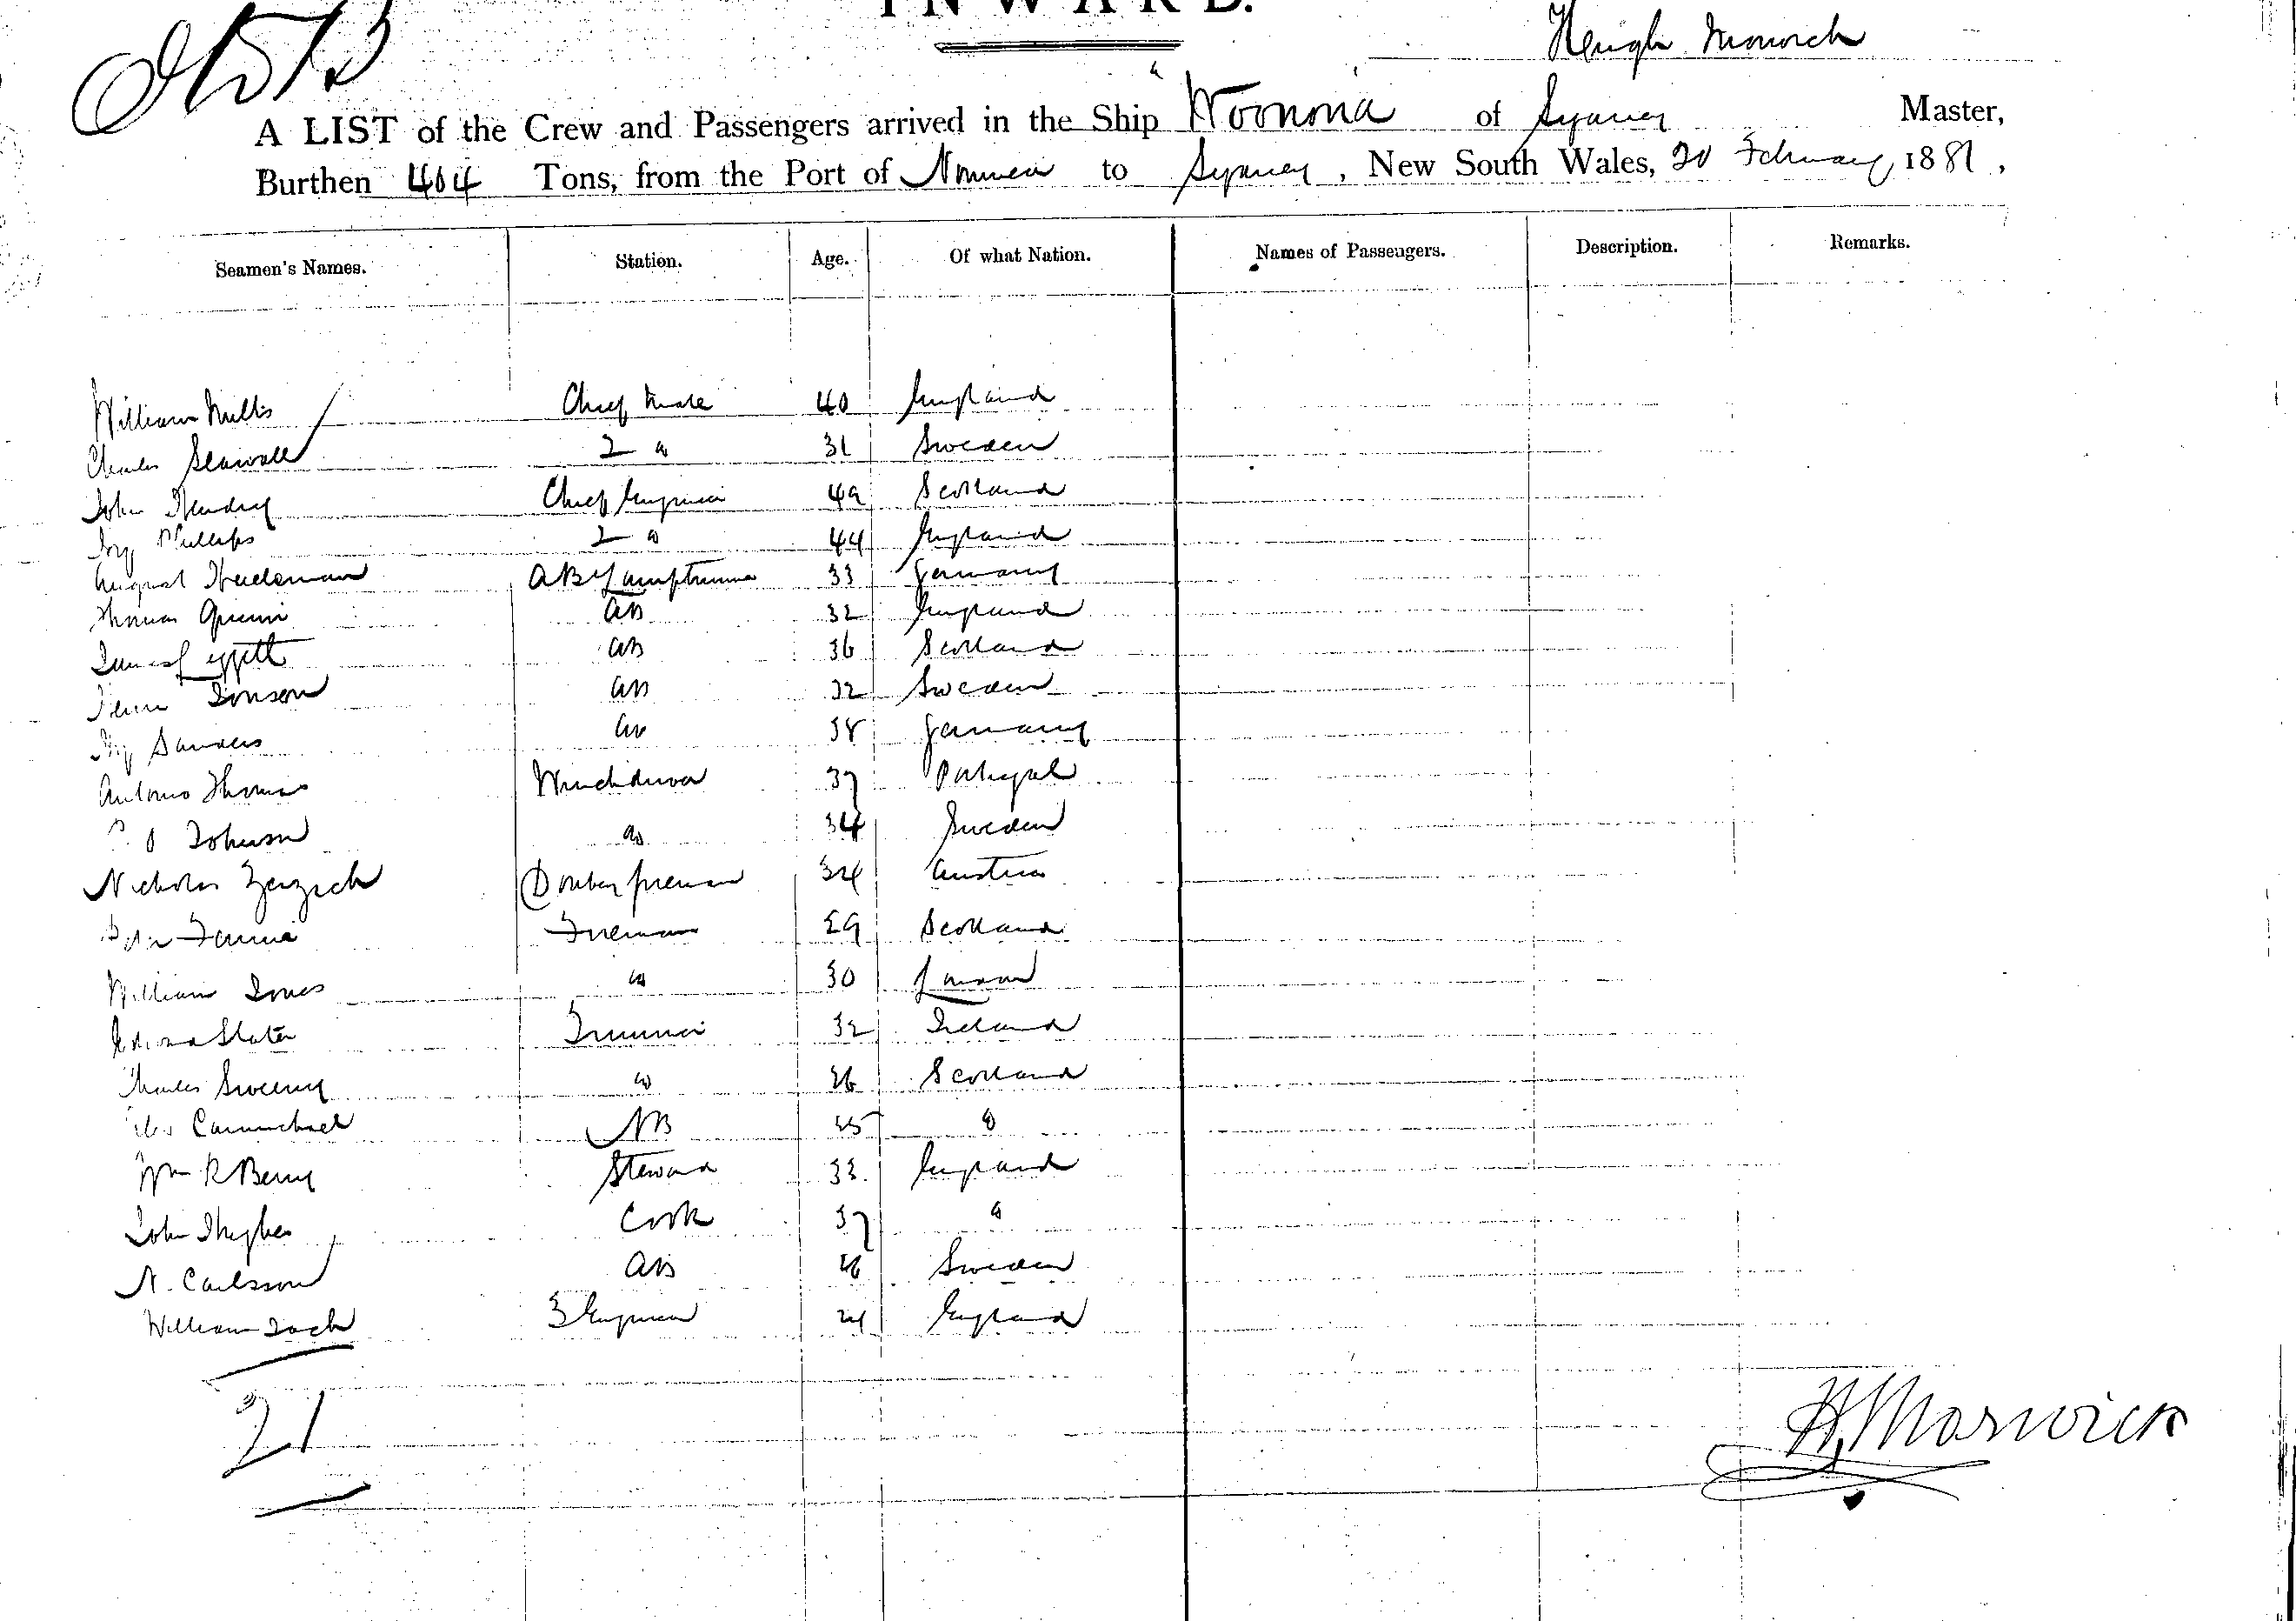 INWARD.
Hugh Morwick
A LIST of the Crew and Passengers arrived in the Ship "Woonona of Sydney Master,
Burthen 404 Tons, from the Port of Noumea to Sydney, New South Wales, 20 February 1881,
Seamen's Names. Station. Age. Of what Nation. Names of Passengers. Description. Remarks.
William Mills Chief Mate 40 England
Charles 2 Do 31 Sweden
John Hendry Chief Engineer 49 Scotland
Phillips 2 Do 44 England
August Heideman AB Lamptrimmer 33 Germany
Thomas AB 32 England
James Leggett AB 36 Scotland
Jonson AB 32 Sweden
Sanders AB 38 Germany
Antonio Thomas Winchdriver 37 Portugal
Johnson Do 34 Sweden
Nicholas Donkeyfireman 34 Austria
Fireman 29 Scotland
William Jones Do 30
Slater Trimmer 32 Ireland
Charles Sweeny Do 26 Scotland
Carmichael AB 25 Do
Wm R Berry Steward 33 England
John Hughes Cook 37 Do
N. Carlsson AB 26 Sweden
William 3 Engineer 24 England
21
H. Morwick